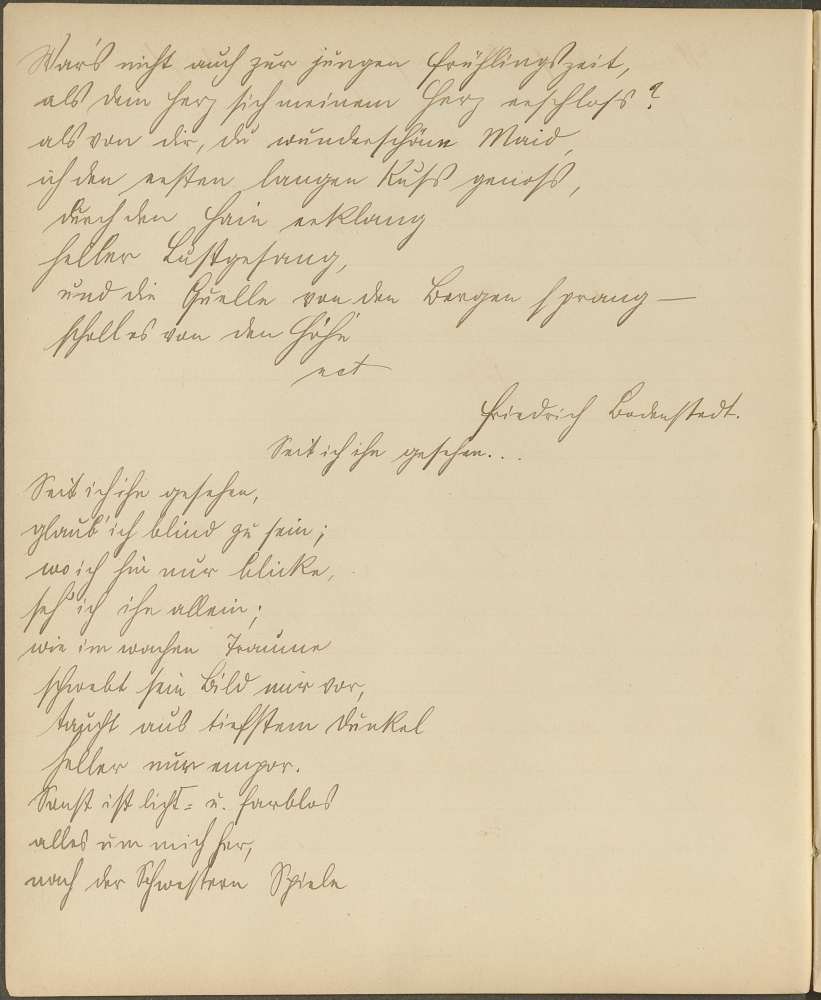 War's nicht auch zur jungen Frühlingszeit,
als dein Herz sich meinem Herz erschloss?
als von dir, du wunderschöne Maid,
ich den ersten langen Kuss genoss,
durch den Hain erklang
heller Lustgesang,
und die Quelle von den Bergen sprang —
scholl es von den Höh'n
Friedrich Bodenstedt.
Seit ich ihn gesehen...
Seit ich ihn gesehen,
glaub' ich blind zu sein;
wo ich hin nur blicke,
seh' ich ihn allein;
wie im wachen Traume
schwebt sein Bild mir vor,
taucht aus tiefstem Dunkel
heller nur empor.
Sonst ist licht- u. farblos
alles um mich her,
nach der Schwestern Spiele